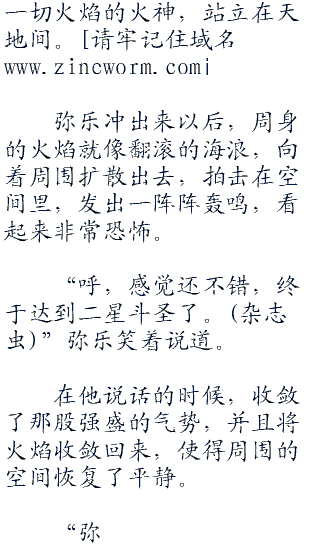 一切火焰的火神，站立在天
地间。[请牢记住域名
www.zincworm.com|
弥乐冲出来以后，周身
的火焰就像翻滚的海浪，向
着周围扩散出去，拍击在空
间里，发出一阵阵轰鸣，看
起来非常恐怖。
“呼，感觉还不错，终
于达到二星斗圣了。(杂志
虫)”弥乐笑着说道。
在他说话的时候，收敛
了那股强盛的气势，并且将
火焰收敛回来，使得周围的
空间恢复了平静。
“弥